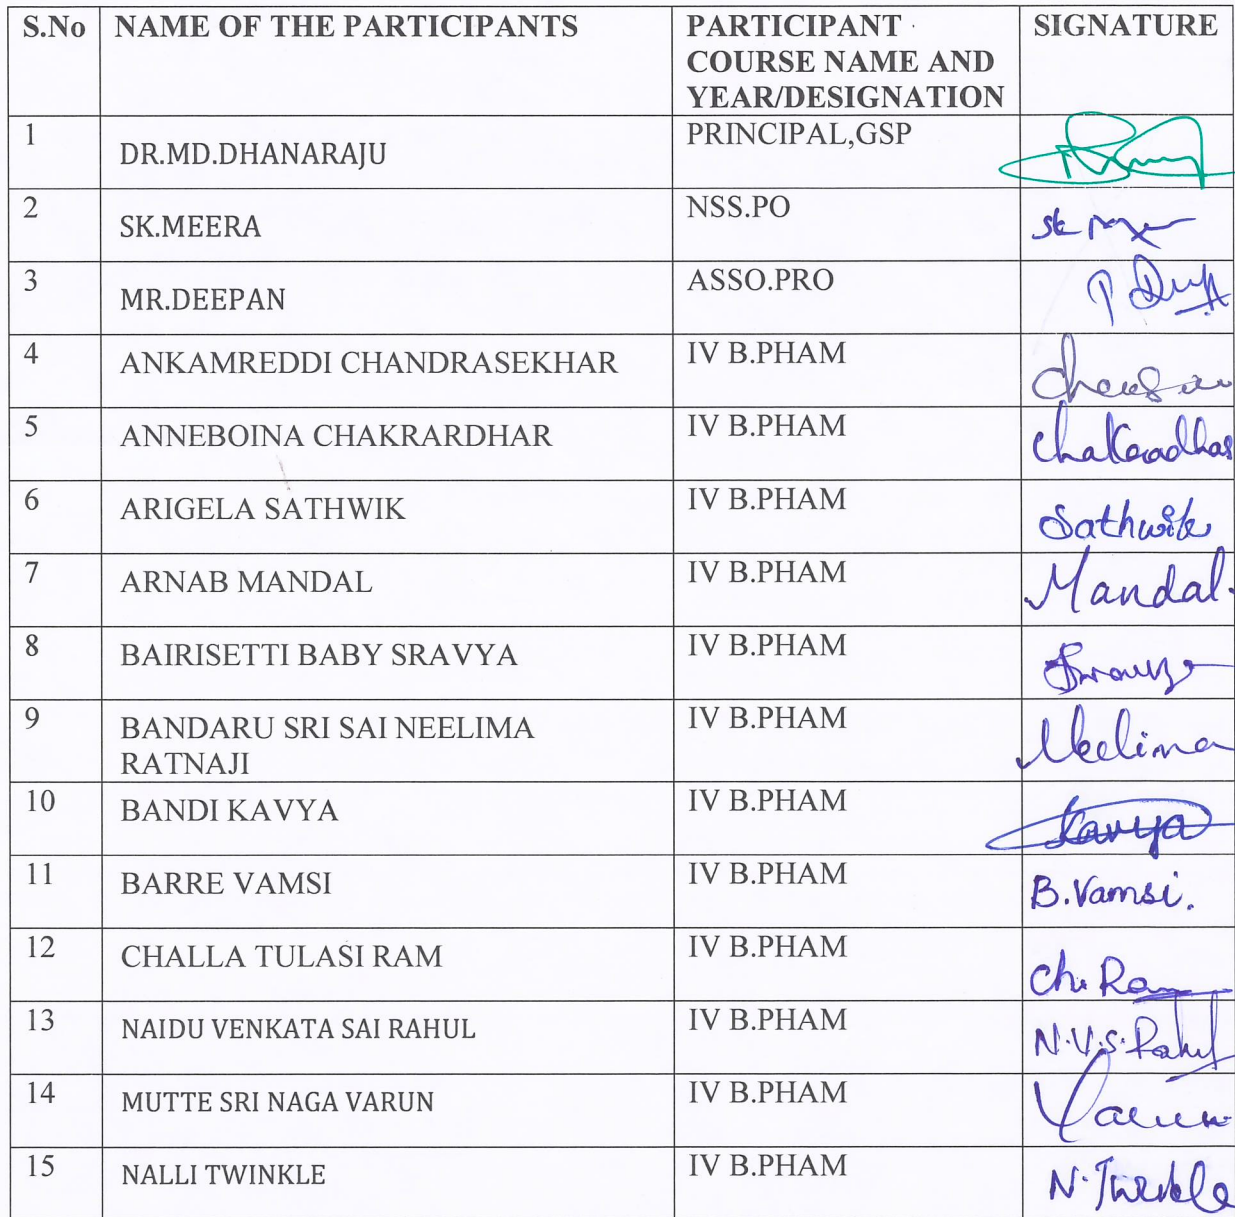 S.No NAME OF THE PARTICIPANTS PARTICIPANT COURSE NAME AND YEAR/DESIGNATION SIGNATURE
1 DR.MD.DHANARAJU PRINCIPAL,GSP
2 SK.MEERA NSS.PO
3 MR.DEEPAN ASSO.PRO
4 ANKAMREDDI CHANDRASEKHAR IV B.PHAM
5 ANNEBOINA CHAKRARDHAR IV B.PHAM Chakradhar
6 ARIGELA SATHWIK IV B.PHAM Sathwik
7 ARNAB MANDAL IV B.PHAM Mandal.
8 BAIRISETTI BABY SRAVYA IV B.PHAM
9 BANDARU SRI SAI NEELIMA RATNAJI IV B.PHAM Neelima
10 BANDI KAVYA IV B.PHAM Kavya
11 BARRE VAMSI IV B.PHAM B.Vamsi.
12 CHALLA TULASI RAM IV B.PHAM Ch. Ram
13 NAIDU VENKATA SAI RAHUL IV B.PHAM N.V.S.Rahul
14 MUTTE SRI NAGA VARUN IV B.PHAM Varun
15 NALLI TWINKLE IV B.PHAM N.Twinkle